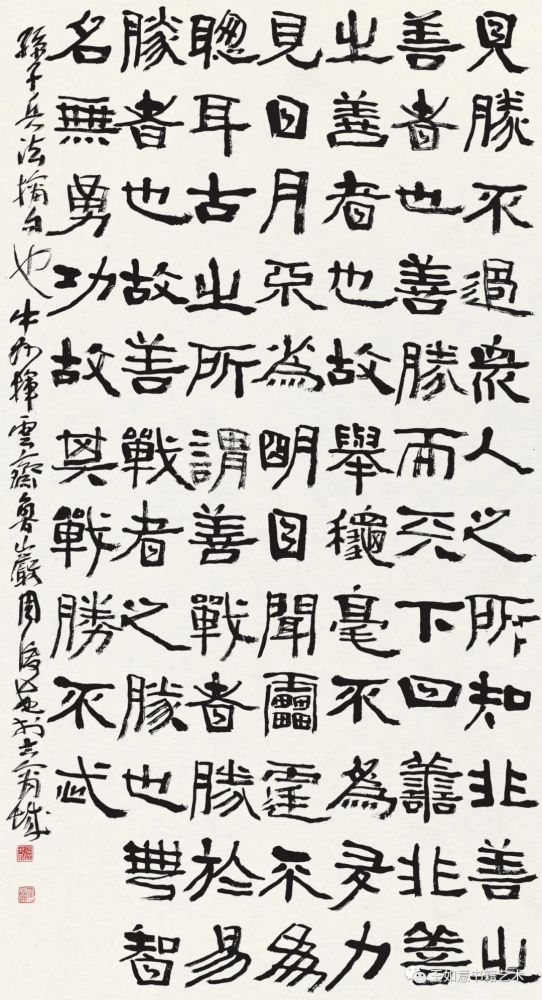 見勝不過衆人之所知非善之
善者也善勝而天下曰善非善
之善者也故舉龝毫不為多力
見日月不為明目聞靁霆不為
聰耳古之所謂善戰者勝於易
勝者也故善戰者之勝也無智
名無勇功故其戰勝不忒
孫子兵法摘句也揮雲齋魯巖周俊
如意书籍艺术